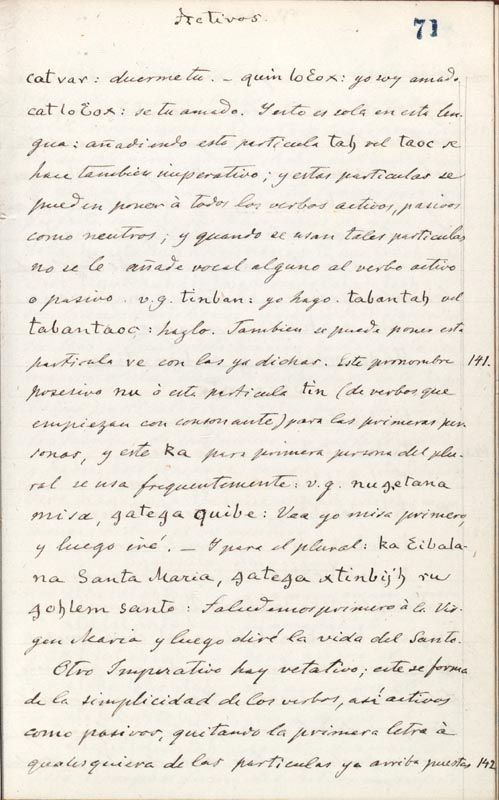 Activos.
71
cat var: duermetu. – quin loƐox: yo soy amado
cat loƐox: se tu amado. Y esto es sola en esta len-
gua: añadiendo esta particula tah vel taoc se
hace tambien imperativo; y estas particulas se
pueden poner à todos los verbos activos, pasivos
como neutros; y quando se usan tales particulas
no se le añade vocal alguno al verbo activo
o pasivo. v.g. tinban: yo hago. tabantah vel
tabantaoc: hazlo. Tambien se puede poner esta
particula ve con las ya dichas. Este pronombre 141.
posesivo nu ò esta particula tin (de verbos que
empiezan con consonante) para las primeras per-
sonas, y este ka para primera persona del plu-
ral se usa frequentemente: v.g. nuʒetana
misa, ʒateʒa quibe: Vea yo misa primero,
y luego iré. – Y para el plural: ka Ɛibala-
na Santa Maria, ʒateʒa xtinbijh ru
ʒohlem santo: Saludemos primero à la Vir-
gen Maria y luego diré la vida del Santo.
Otro Imperativo hay vetativo; este se forma
de la simplicidad de los verbos, asi activos
como pasivos, quitando la primera letra à
qualesquiera de las particulas ya arriba puestas 142